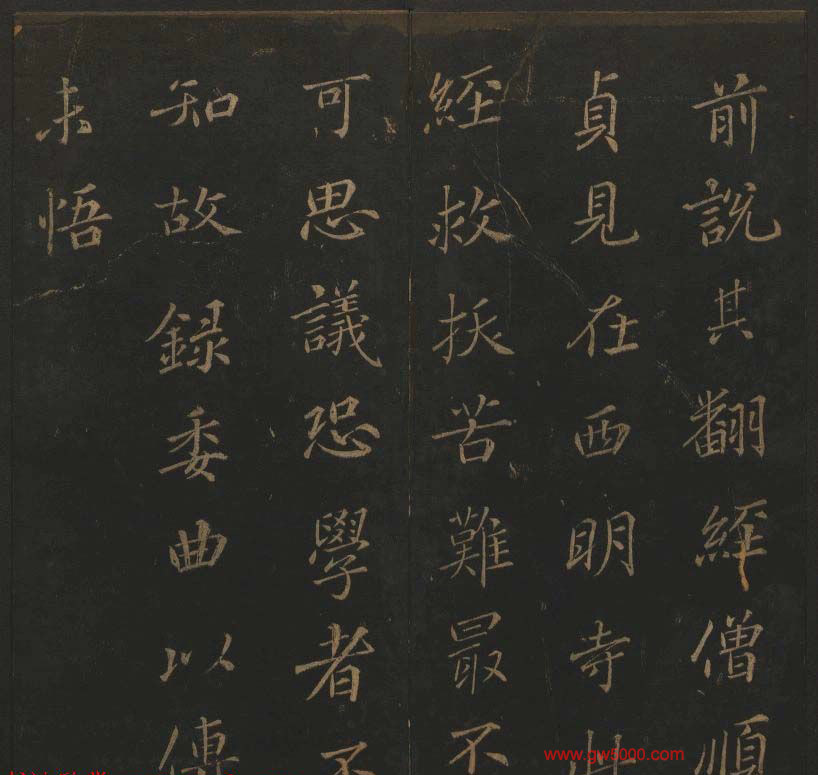 前說其翻經僧順
貞見在西明寺此
經救拔苦難最不
可思議恐學者不
知故錄委曲以傳
未悟
www.gw5000.com